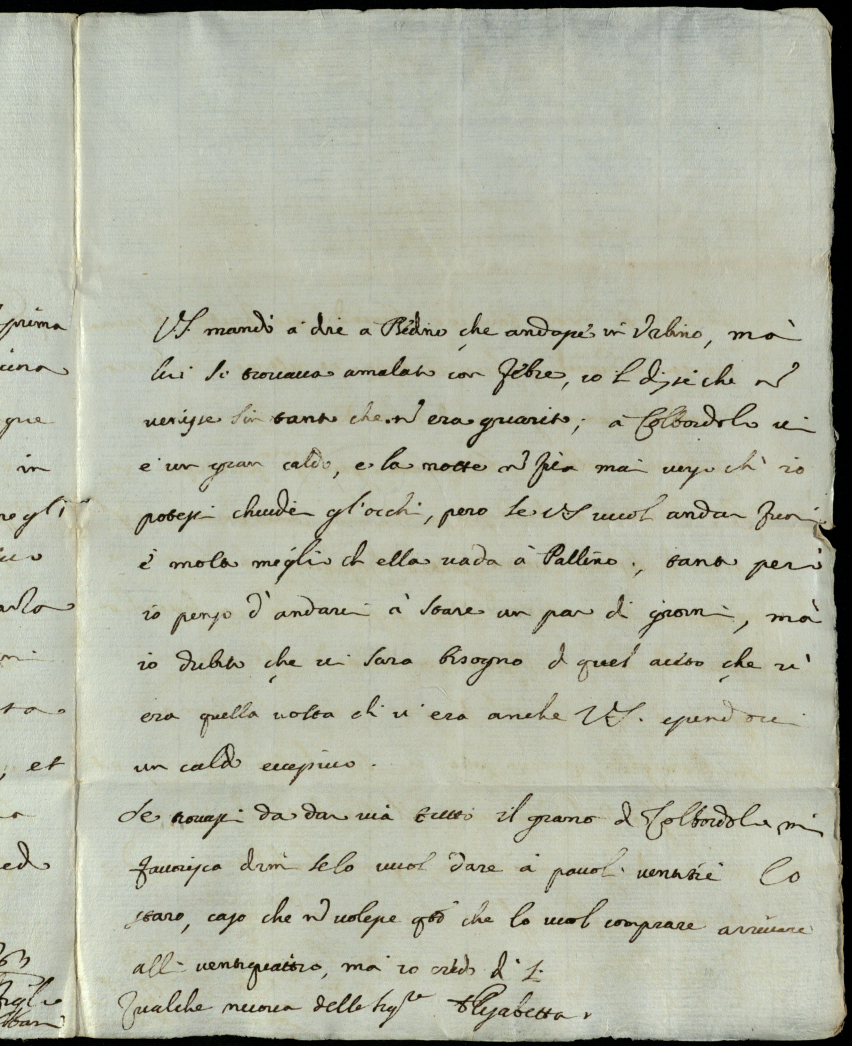 prima
VS mandò a dire a Pedrino che andasse in Urbino, mà
lui si trovava amalato con febre, io li dissi che nō
que
venisse sin tanto che nō era guarito; à Colbordolo vi
in
è un gran caldo, e la notte nō fù mai verso ch' io
potessi chiuder gl'occhi, pero se VS vuol andar fuori
è molto meglio ch ella vada à Pallino, tanto però
io penso d'andarci à stare un par di giorni, mà
io dubito che vi sara bisogno d quel aiuto che v'
era quella volta ch v'era anche VS. essendoci
, et
un caldo eccessivo.
Se trovassi da dar via tutto il grano d Colbordolo mi
ed
favorisca dirmi se lo vuol dare à pauoli ventitrè lo
staro, caso che nō volesse qto che lo vuol comprare arrivare
alli ventiquattro, mà io credo di sì.
figlio
Qualche nuova della Sigra Elisabetta.